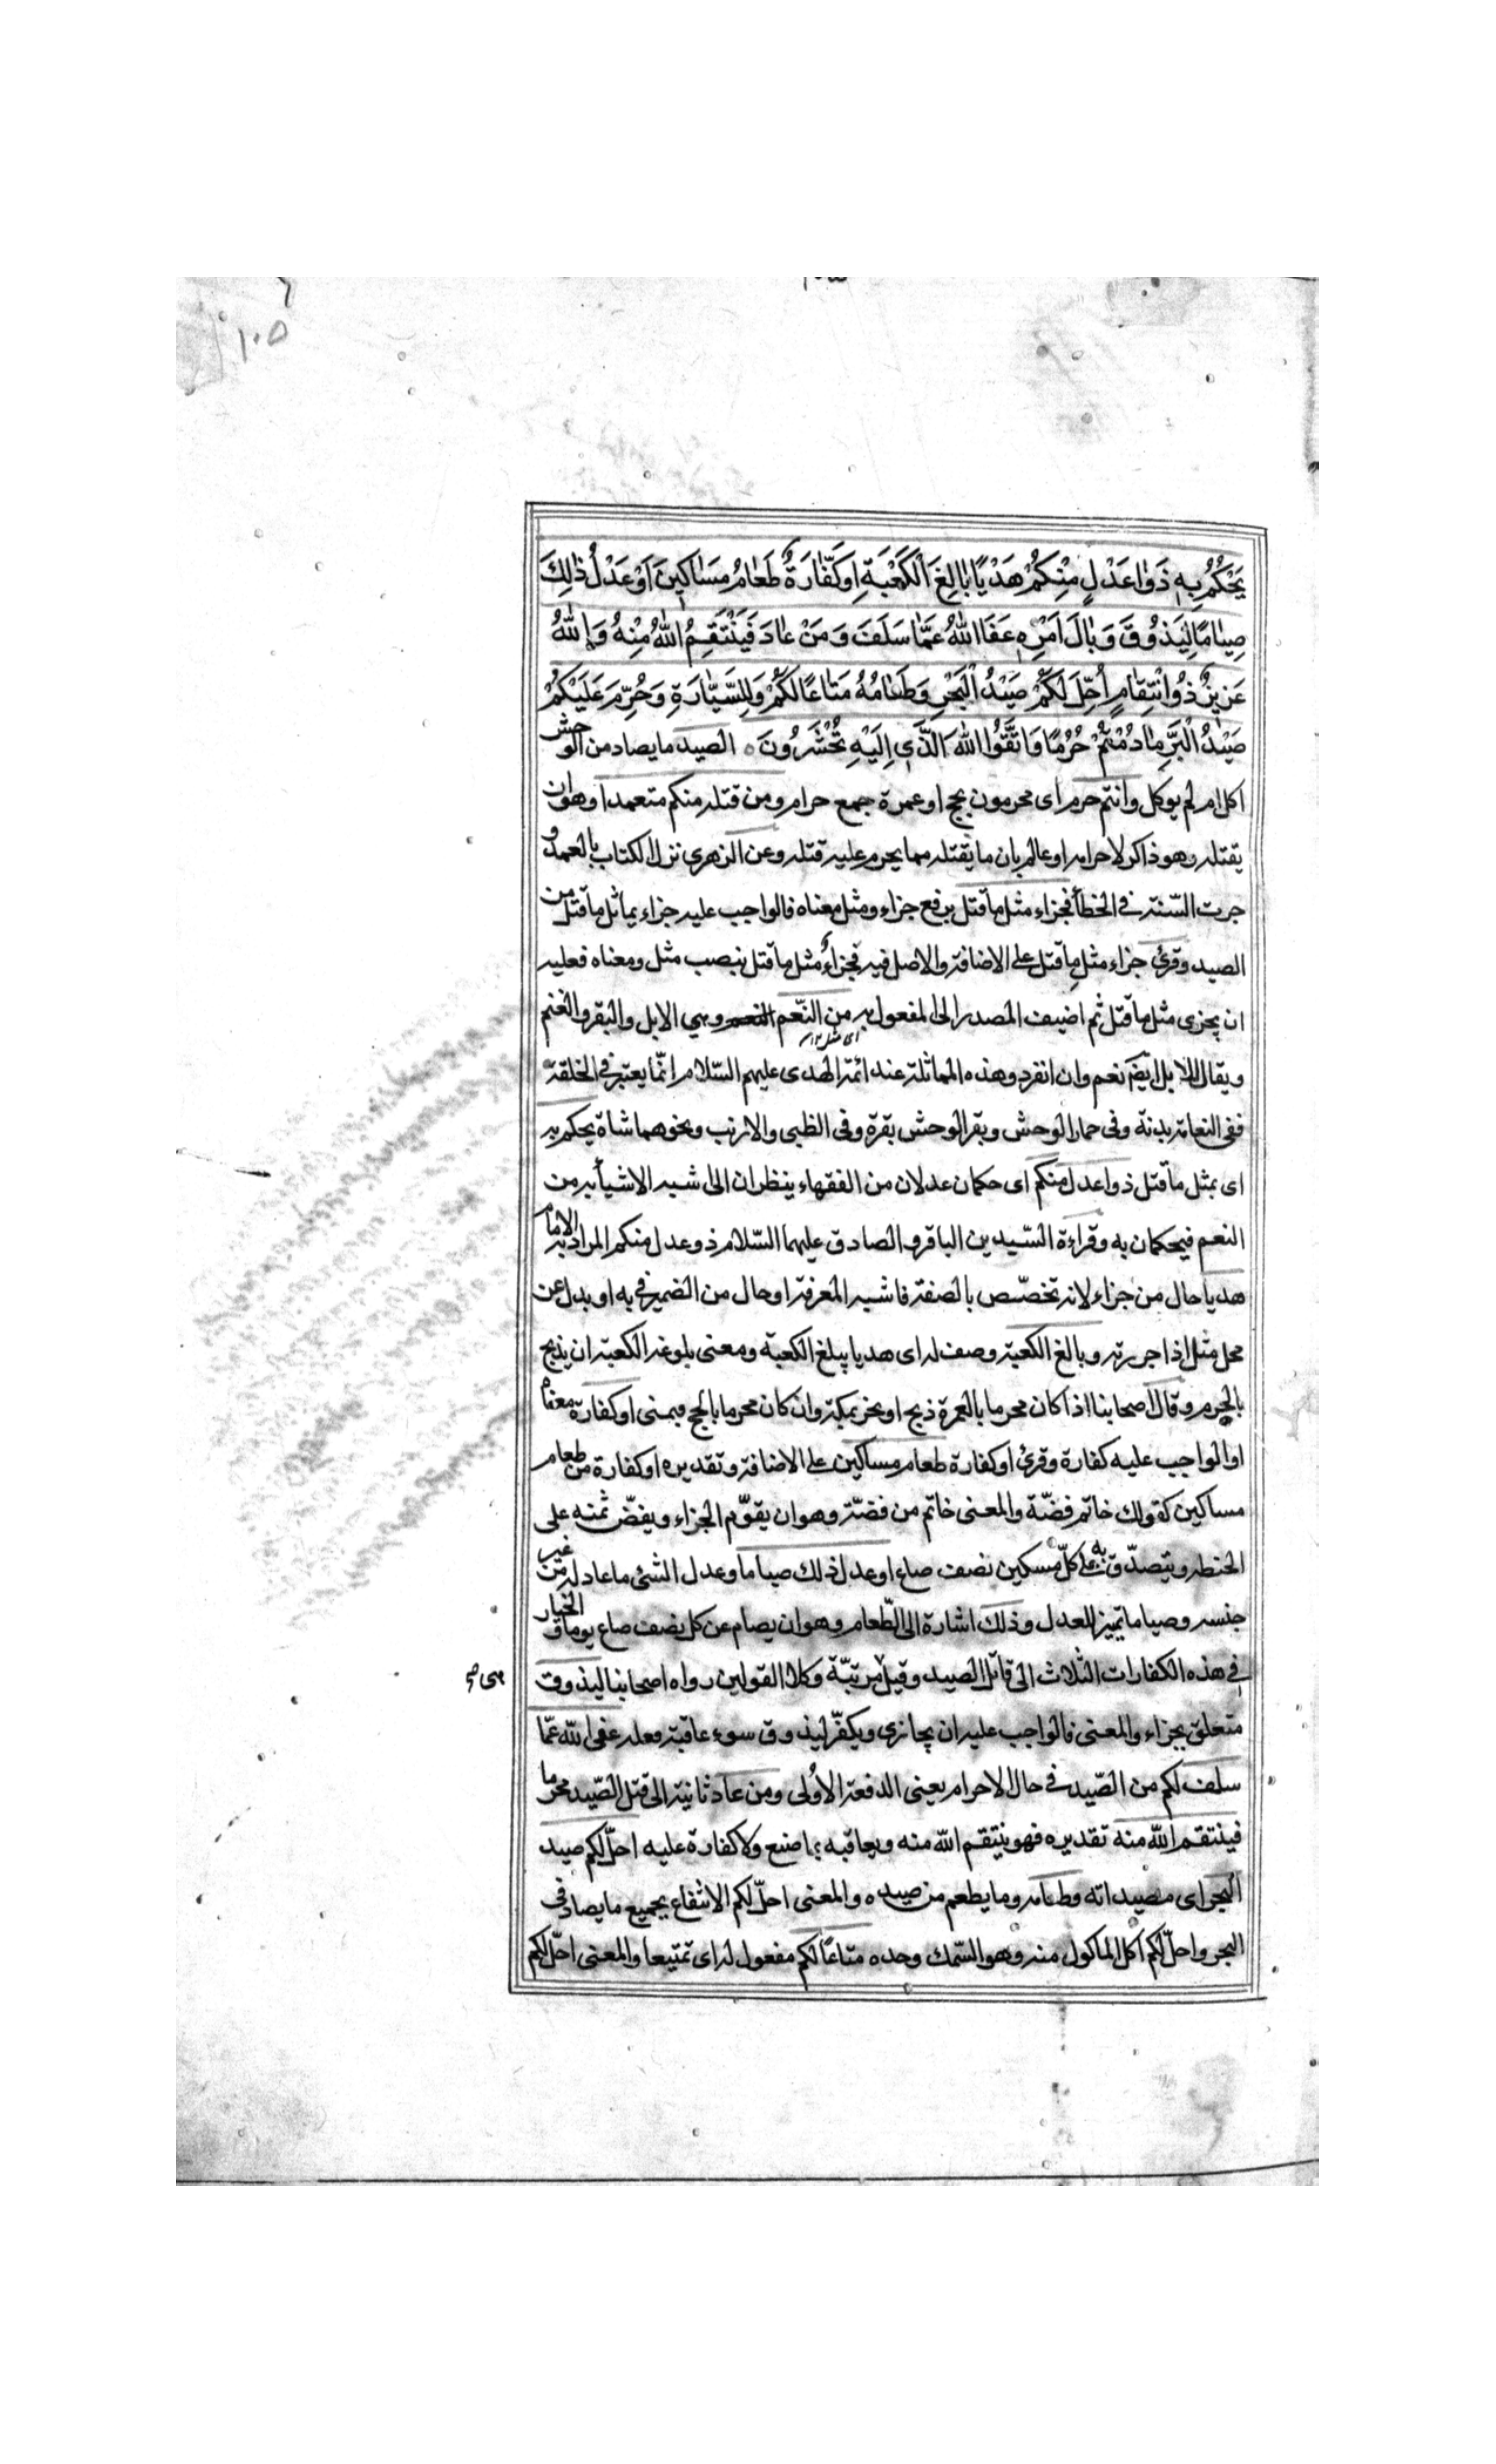 ١٠٥
يَحْكُمُ بِهِ ذَوٰا عَدْلٍ مِنْكُمْ هَدْيًا بٰالِغَ الْكَعْبَةِ اَوْ كَفّٰارَةٌ طَعٰامُ مَسٰاكِينَ اَوْ عَدْلُ ذٰلِكَ
صِيٰامًا لِيَذُوقَ وَبٰالَ اَمْرِهِ عَفَا اللّٰهُ عَمّٰا سَلَفَ وَمَنْ عٰادَ فَيَنْتَقِمُ اللّٰهُ مِنْهُ وَاللّٰهُ
عَزِيزٌ ذُو انْتِقٰامٍ اُحِّلَ لَكُمْ صَيْدُ الْبَحْرِ وَطَعٰامُهُ مَتٰاعًا لَكُمْ وَلِلسَّيّٰارَةِ وَحُرِّمَ عَلَيْكُمْ
صَيْدُ الْبَرِّ مٰا دُمْتُمْ حُرُمًا وَاتَّقُوا اللّٰهَ الَّذِي اِلَيْهِ تُحْشَرُونَ ه الصيد ما يصاد من الوحش
اكل ام لم يوكل وانتم حرم اى محرمون بحج او عمرة جمع حرام ومن قتله منكم متعمدا وهو ان
يقتله وهو ذاكر لاحرامه او عالم بان ما يقتله مما يحرم عليه قتله وعن الزهرى نزل الكتاب بالعمد و
جرت السّنة فى الخطأ فجزاء مثل ما قتل برفع جزاء ومثل معناه فالواجب عليه جزاء يماثل ما قتل من
الصيد وقرئ جزاء مثلِ ما قتل على الاضافة والاصل فيه فجزاءٌ مثل ما قتل بنصب مثل ومعناه فعليه
ان يجزى مثل ما قتل ثم اضيف المصدر الى المفعول به من النّعم النعم وهي الابل والبقر والغنم
ويقال للابل ايضً نعم وان انفرد وهذه المماثلة عند ائمة الهدى عليهم السّلام انّما يعتبر فى الخلقة
ففى النعامة بدنة وفى حمار الوحش وبقر الوحش بقرة وفى الظبى والارنب ونحوهما شاة يحكم به
اى بمثل ما قتل ذوا عدل منكم اى حكمان عدلان من الفقهاء ينظران الى شبه الاشياء به من
النعم فيحكمان به وقراءة السّيدين الباقر والصادق عليهما السّلام ذو عدل منكم المراد به الامام
هديا حال من جزاء لانه تخصّص بالصفة فاشبه المعرفة او حال من الضمير فى به او بدل عن
محل مثل اذا جررته وبالغ الكعبة وصف له اى هديا يبلغ الكعبة ومعنى بلوغه الكعبة ان يذبح
بالحرم وقال اصحابنا اذا كان محرما بالعمرة ذبح او نحر بمكة وان كان محرما بالحج فبمنى او كفارة معناه
او الواجب عليه كفارة وقرئ او كفارة طعام مساكين على الاضافة وتقديره او كفارة من طعام
مساكين كقولك خاتم فضّة والمعنى خاتم من فضّة وهو ان يقوّم الجزاء ويفضّ ثمنه على
الحنطه ويتصدّق به على كلّ مسكين نصف صاع او عدل ذلك صياما وعدل الشئ ما عادله من غير
جنسه وصياما تمييز للعدل وذلك اشارة الى الطّعام وهو ان يصام عن كل نصف صاع يوما و الخيار
فى هذه الكفارات الثلاث الى قاتل الصيد وقيل مرتبّة وكلا القولين رواه اصحابنا ليذوق
متعلق بجزاء والمعنى فالواجب عليه ان يجازى ويكفّر ليذوق سوء عاقبة فعله عفى اللّه عمّا
سلف لكم من الصّيد فى حال الاحرام يعنى الدفعة الاولى ومن عاد ثانية الى قتل الصّيد محرما
فينتقم اللّه منه تقديره فهو ينتقم اللّه منه ويعاقبه بما صنع ولا كفارة عليه احلّ لكم صيد
البحر اى مصيداته وطعامه وما يطعم من صيده والمعنى احلّ لكم الانتفاع بجميع ما يصاد فى
البحر واحلّ لكم اكل الماكول منه وهو السّمك وحده متاعًا لكم مفعول له اى تمتيعا والمعنى احلّ لكم